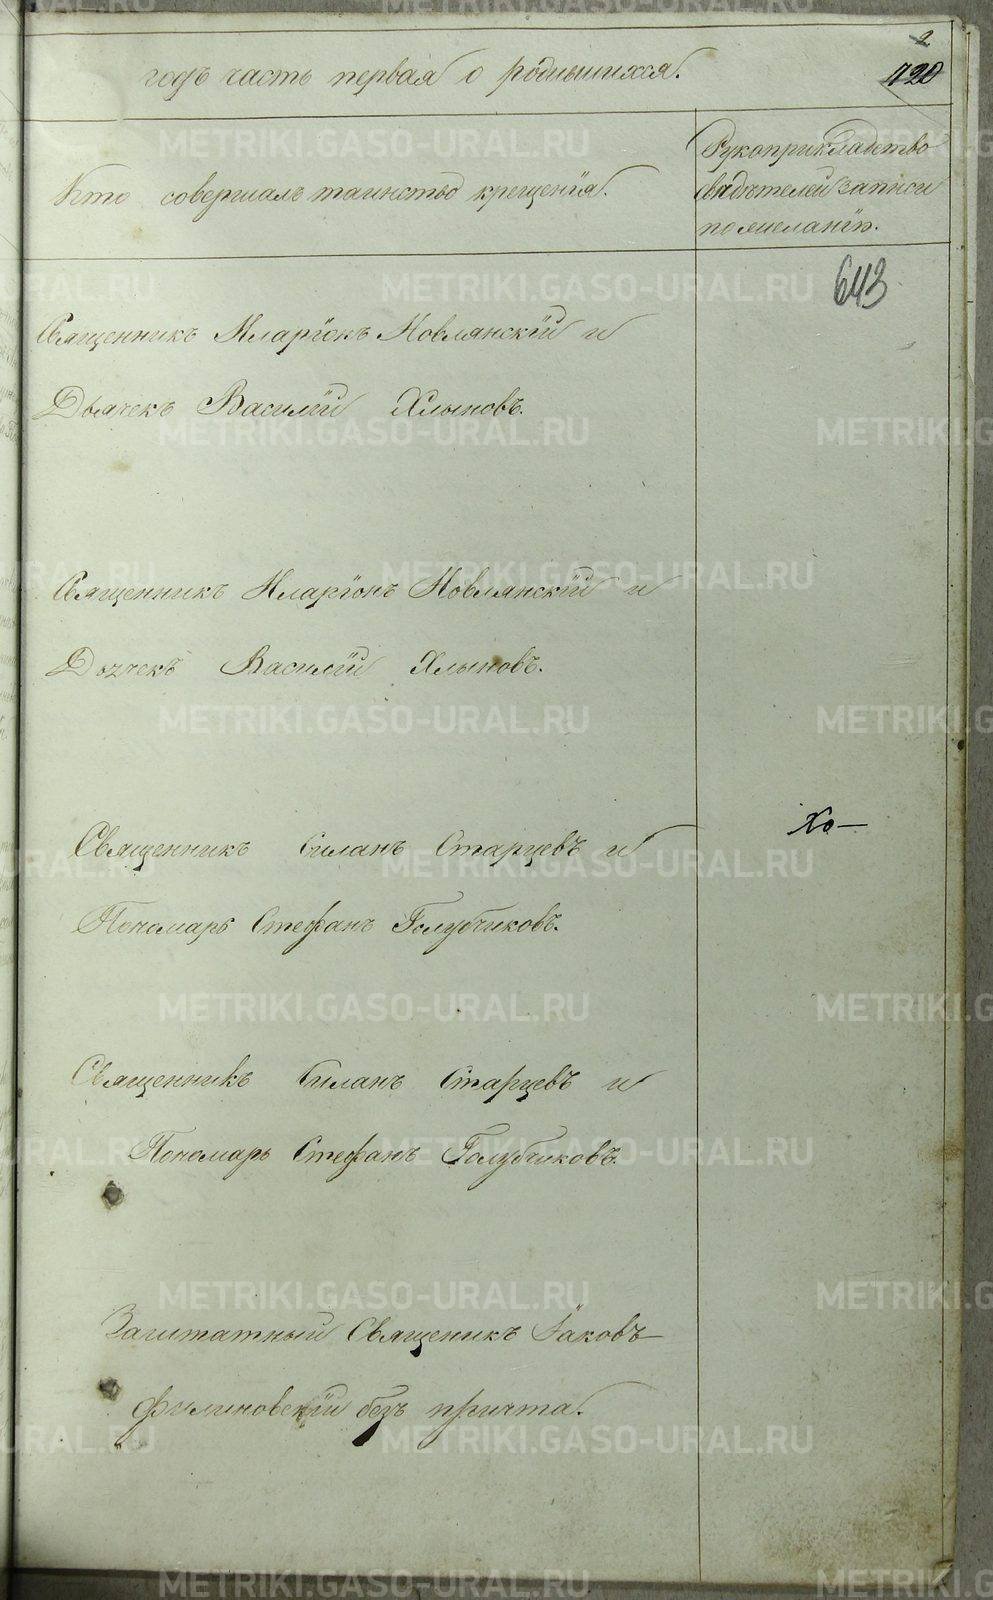 2
120
годъ часть первая о родившихся.
Кто совершалъ таинство крещенія.
Рукоприкладство
свидѣтелей записи
по желанію.
643
Священникъ Иларіонъ Новлянскій и
Дьячекъ Василій Хлыновъ.
Священникъ Иларіонъ Новлянскій и
Дьячекъ Василій Хлыновъ.
Священникъ Силанъ Старцевъ и
Пономарь Стефанъ Голубчиковъ.
Хо—
Священникъ Силанъ Старцевъ и
Пономарь Стефанъ Голубчиковъ.
Заштатный Священикъ Іаковъ
Филиновскій безъ причта.
METRIKI.GASO-URAL.RU